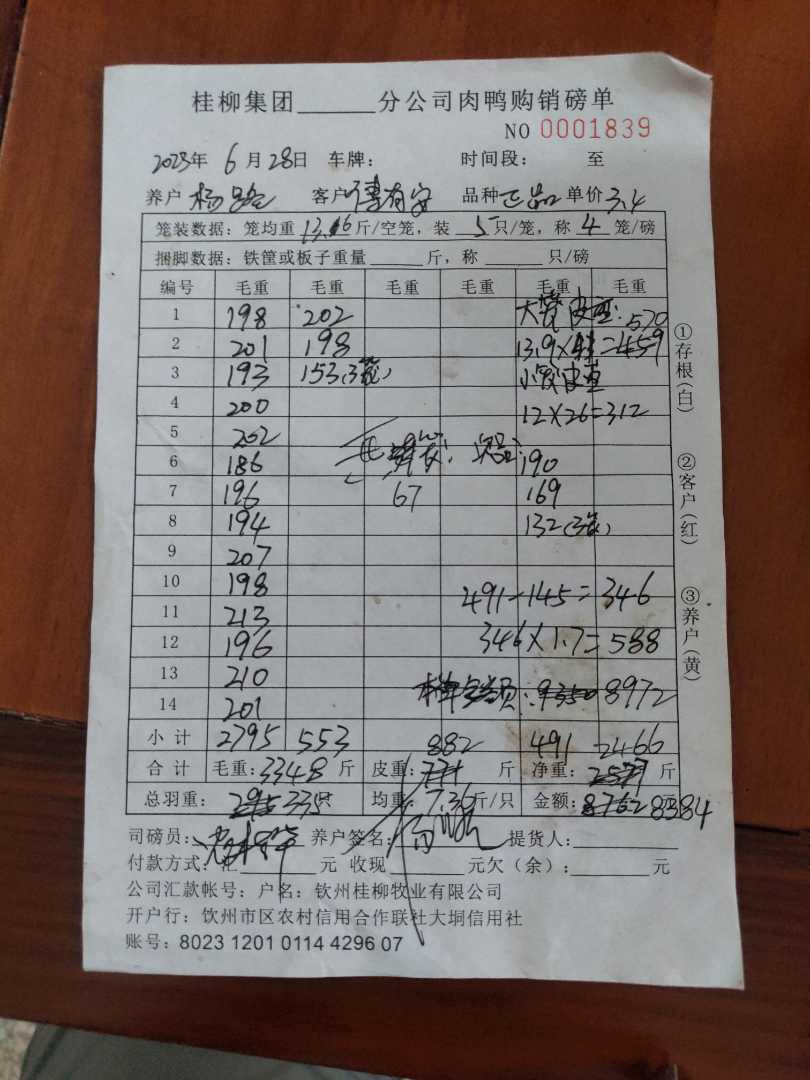 桂柳集团______分公司肉鸭购销磅单
NO 0001839
2023年 6月28日 车牌: 时间段: 至
养户 杨 客户 有安 品种 正品 单价 3.4
笼装数据: 笼均重 斤/空笼, 装 5 只/笼, 称 4 笼/磅
捆脚数据: 铁筐或板子重量______斤, 称______只/磅
编号 毛重 毛重 毛重 毛重 毛重 毛重
1 198 202 大 皮重: 570
2 201 198 13.9× =459
3 193 153(3笼) 小 皮重
4 200 12×26=312
5 202
6 186 190
7 196 67 169
8 194 132(3笼)
9 207
10 198 491-145=346
11 213
12 196 346×1.7=588
13 210
14 201 8972
小计 2795 553 882 491 2466
合计 毛重: 3348 斤 皮重: 斤 净重: 斤
总羽重: 335只 均重: 7.36斤/只 金额: 8384
司磅员: 养户签名: 提货人:
付款方式: 汇______元 收现______元欠(余):______元
公司汇款帐号: 户名: 钦州桂柳牧业有限公司
开户行: 钦州市区农村信用合作联社大垌信用社
账号: 8023 1201 0114 4296 07
①存根(白)
②客户(红)
③养户(黄)